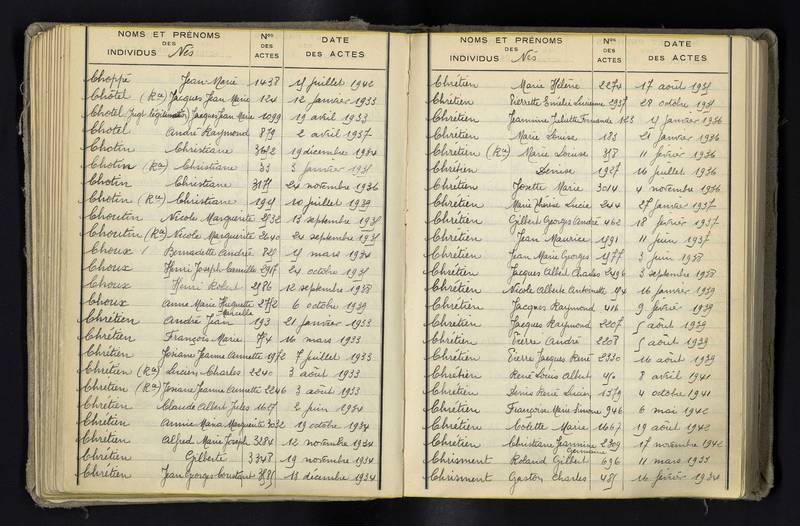 NOMS ET PRÉNOMS
DES
INDIVIDUS Nés
Nos
DES
ACTES
DATE
DES ACTES
Choppé Jean Marie 1438
Chotel (Ra) Jacques Jean Marie 124 12 janvier 1933
Chotel Jacques Jean Marie 1099 19 avril 1933
Chotel André Raymond 879 2 avril 1937
Chotin Christiane 19 décembre 1934
Chotin (Ra) Christiane 33 3 janvier
Chotin Christiane 24 novembre 1936
Chotin (Ra) Christiane 10 juillet 1939
Choutin Nicole Marguerite 13 septembre
Choutin (Ra) Nicole Marguerite 2640 24 septembre
Choux Bernadette Andrée mars 1934
Choux Henri Joseph Camille 24 octobre
Choux Henri Robert 2186 12 septembre 1938
Choux Anne Marie Huguette 6 octobre 1939
Chrétien André Jean 193 21 janvier 1933
Chrétien François Marie 774 16 mars 1933
Chrétien Josiane Jeanne Annette 1972 7 juillet 1933
Chrétien (Ra) Lucien Charles 2240 3 août 1933
Chrétien (Ra) Josiane Jeanne Annette 2246 3 août 1933
Chrétien Claude Albert Jules 1627 2 juin 1934
Chrétien Annie Maria Marguerite 3032 19 octobre 1934
Chrétien Alfred Marie Joseph 3284 12 novembre 1934
Chrétien Gilberte 3348 19 novembre 1934
Chrétien Jean Georges Constant 13 décembre 1934
NOMS ET PRÉNOMS
DES
INDIVIDUS Nés
Nos
DES
ACTES
DATE
DES ACTES
Chrétien Marie Hélène 2274 17 août
Chrétien Pierrette Emilie Lucienne 2937 28 octobre
Chrétien Jeannine Juliette Fernande 123 janvier 1936
Chrétien Marie Louise 183 21 janvier 1936
Chrétien (Ra) Marie Louise 11 février 1936
Chrétien Denise 1927 16 juillet 1936
Chrétien Josette Marie 3014 4 novembre 1936
Chrétien Marie Thérèse Lucie 244 27 janvier 1937
Chrétien Gilbert Georges André 462 18 février 1937
Chrétien Jean Maurice 11 juin 1937
Chrétien Jean Marie Georges 3 juin 1938
Chrétien Jacques Albert Charles 2496 3 septembre 1938
Chrétien Nicole Alberte Antoinette 16 janvier 1939
Chrétien Jacques Raymond 416 9 février 1939
Chrétien Jacques Raymond 2207 5 août 1939
Chrétien Pierre André 2208 5 août 1939
Chrétien Pierre Jacques René 2330 16 août 1939
Chrétien René Louis Albert 8 avril 1941
Chrétien Denis René Lucien 1579 4 octobre 1941
Chrétien Françoise Marie Simone 946 6 mai 1942
Chrétien Colette Marie 1667 19 août 1942
Chrétien Christiane Jeannine Germaine 2309 17 novembre 1942
Chrisment Roland Gilbert 696 11 mars 1933
Chrisment Gaston Charles 16 février 1934